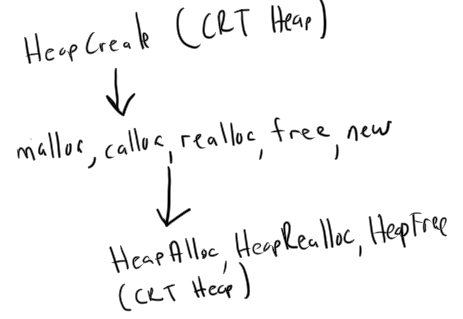 HeapCreate (CRT Heap)
malloc, calloc, realloc, free, new
HeapAlloc, HeapRealloc, HeapFree
(CRT Heap)